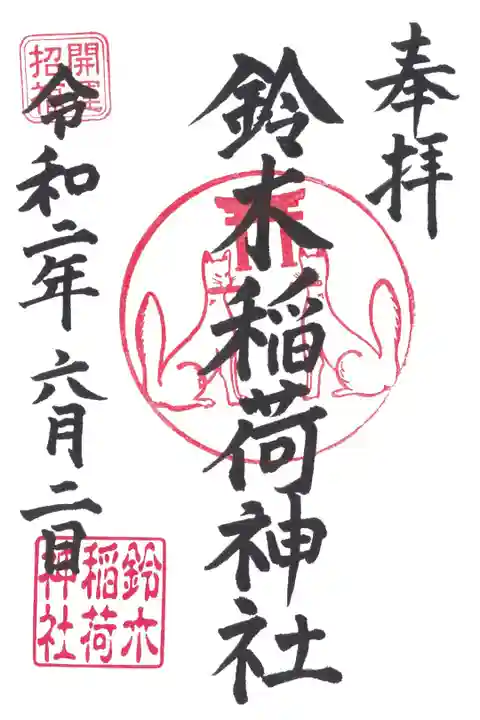 奉拝
鈴木稲荷神社
令和二年六月二日
開運
招福
鈴木
稲荷
神社